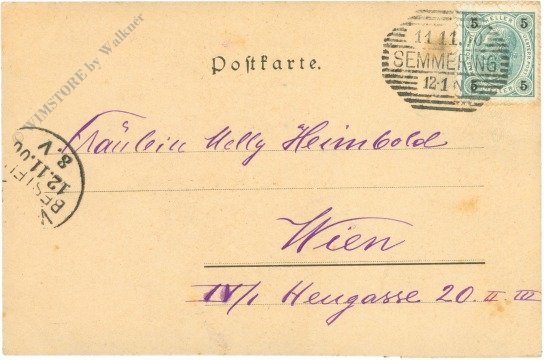 © WIMSTORE by Walkner
5 HELLER 5
5 5
11.11.
SEMMERING
12-1 N
Postkarte.
Fräulein Melly Heimbold
BESTEL
12.11.00
8 V
Wien
IV/1 Heugasse 20. II III